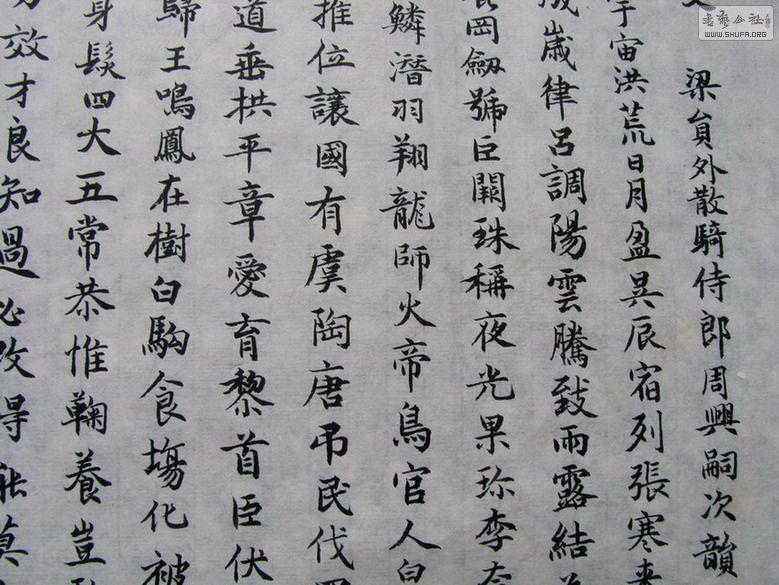 梁貟外散騎侍郎周興嗣次韻
宇宙洪荒日月盈昃辰宿列張寒来
成歲律呂調陽雲騰致雨露結為
崑岡劔號巨闕珠稱夜光果珎李柰
鱗潛羽翔龍師火帝鳥官人皇
推位讓國有虞陶唐弔民伐
道垂拱平章愛育黎首臣伏
歸王鳴鳳在樹白駒食場化被
身髮四大五常恭惟鞠養豈
效才良知過必改得能莫
書藝公社
WWW.SHUFA.ORG